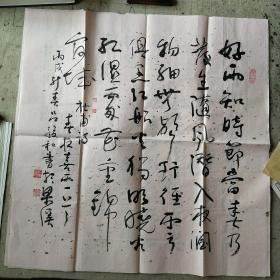 好雨知時節當春乃
發生隨風潛入夜潤
物細無聲野徑雲
俱黑江船火獨明曉看
紅濕處花重錦
官城 杜甫詩
春夜喜雨一首
丙戌 春 和書於梁溪